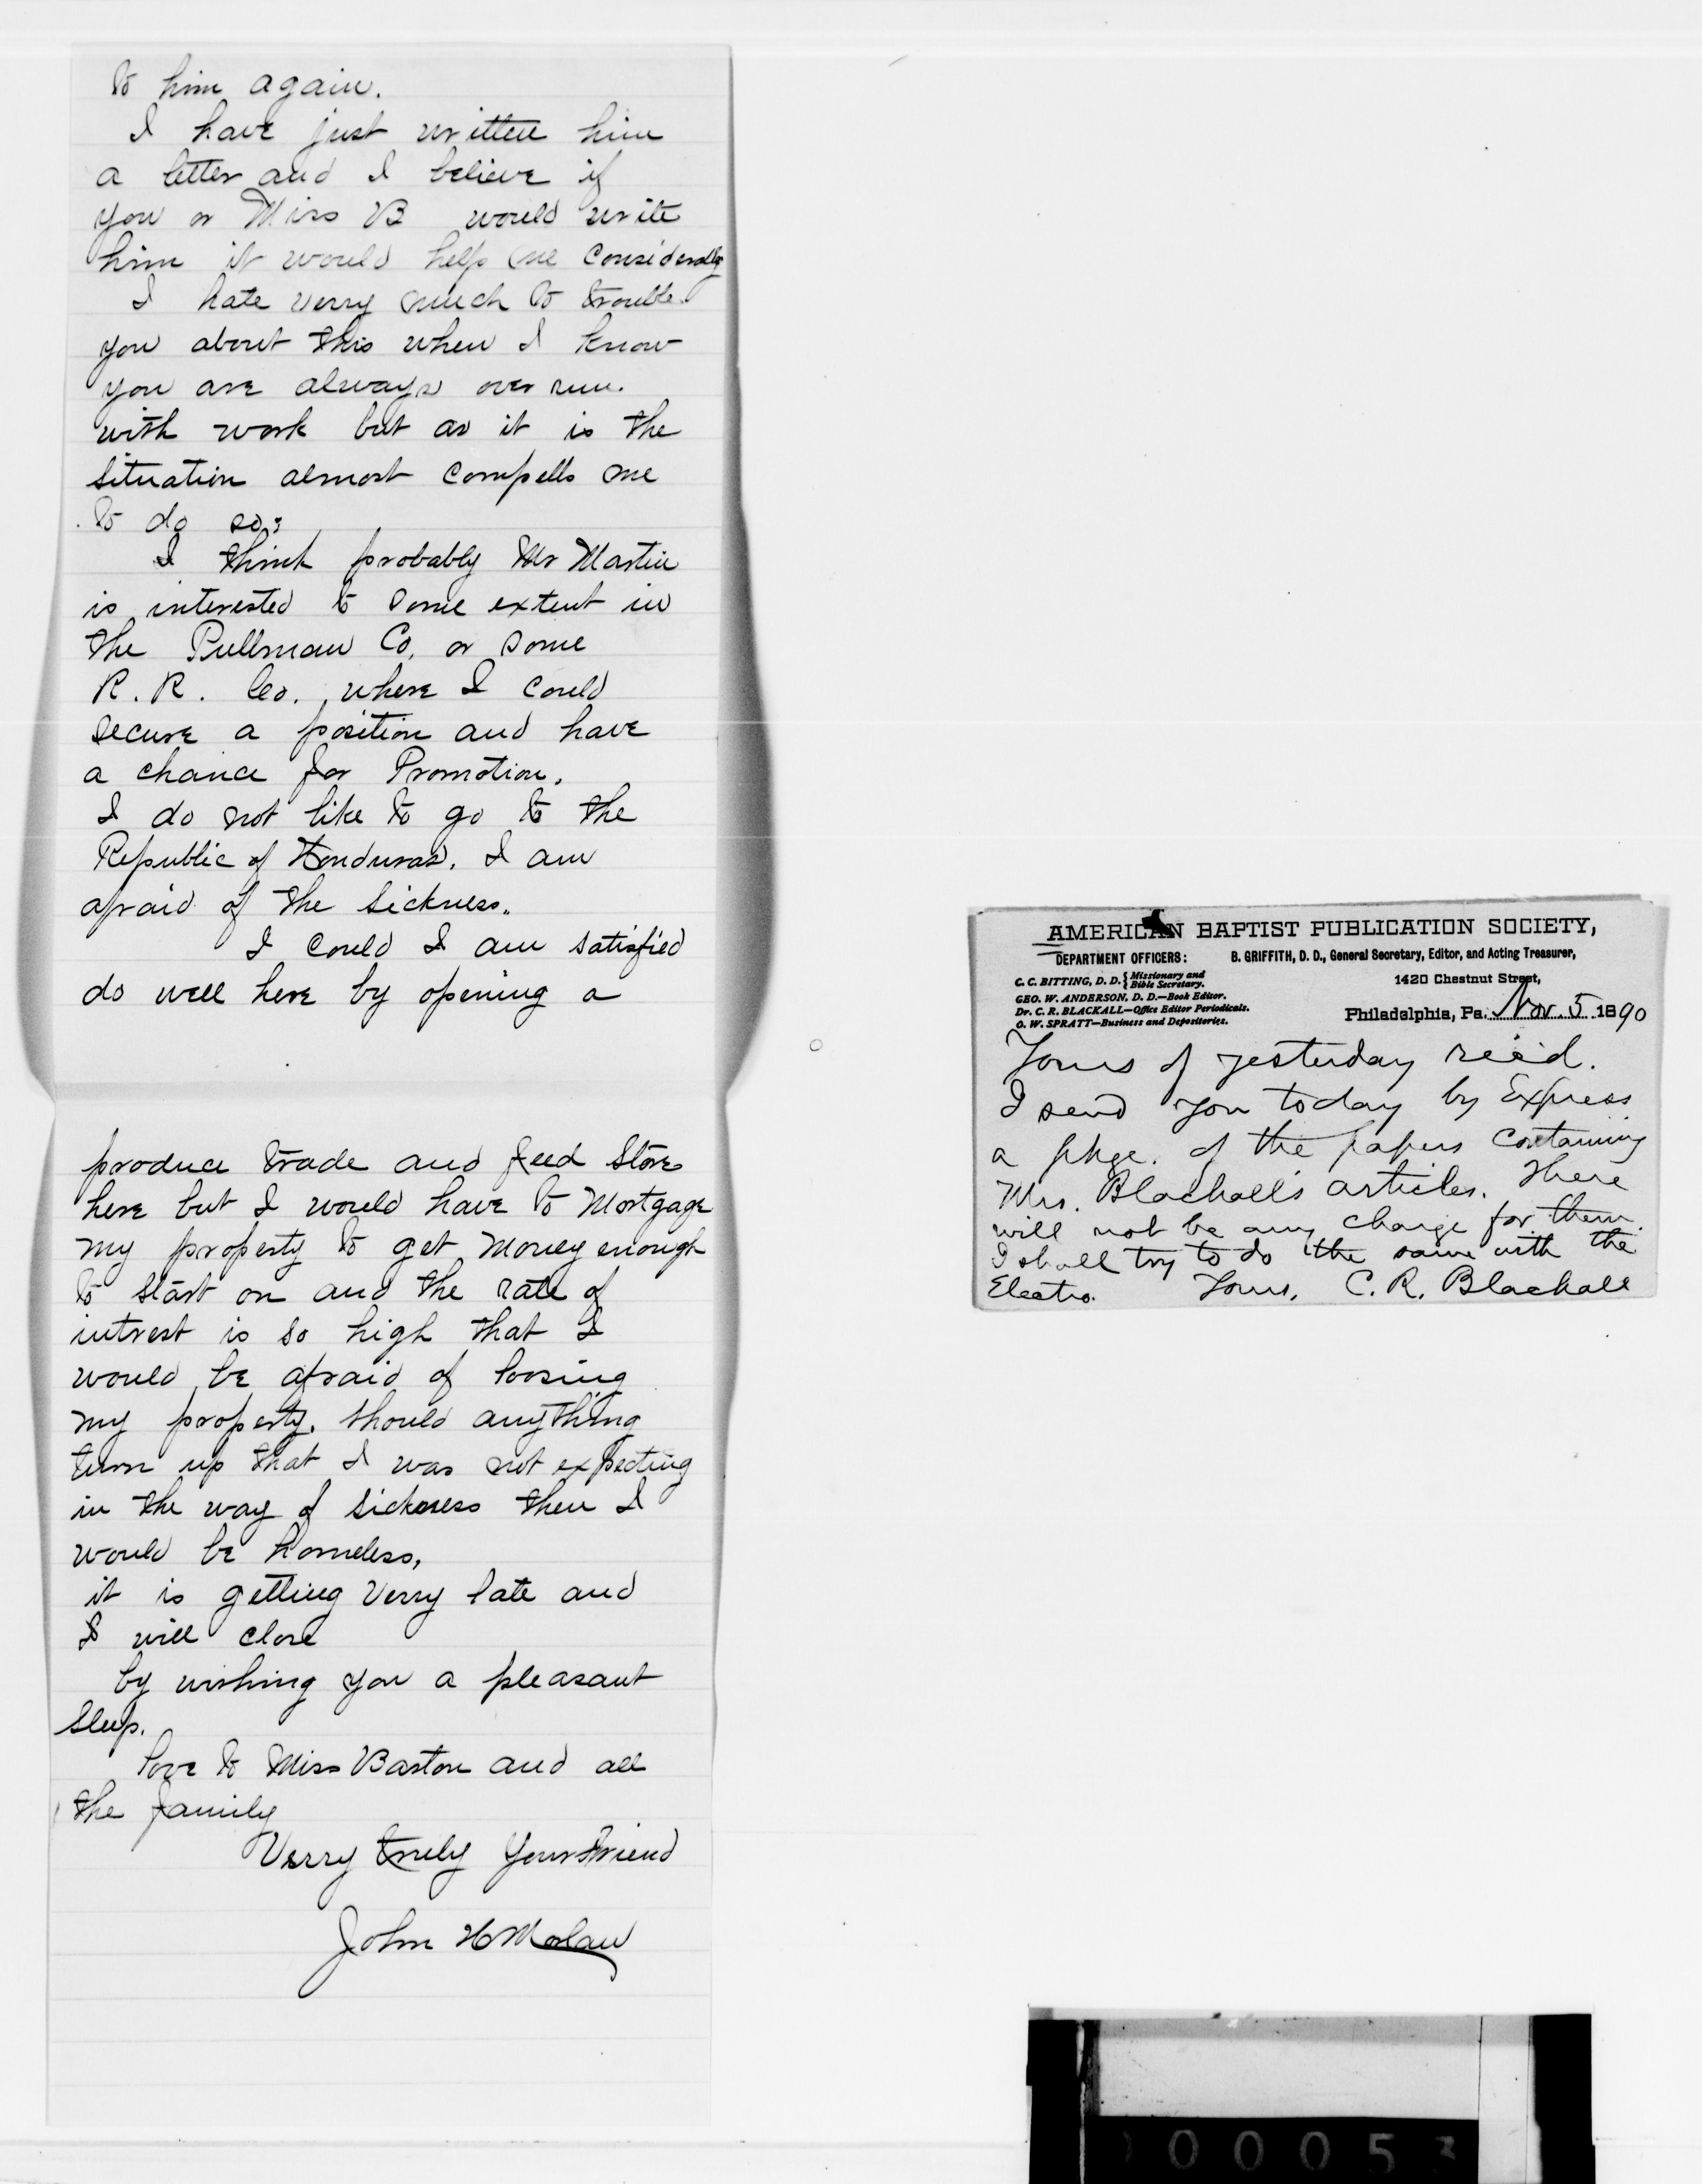 to him again.
I have just written him
a letter and I believe if
you or Miss B would write
him it would help me Considerably
I hate verry much to trouble
you about this when I know
you are always over run.
with work but as it is the
situation almost compells me
to do so:
I think probably Mr Martin
is interested to some extent in
the Pullman Co, or some
R. R. Co. where I could
secure a position and have
a chance for Promotion.
I do not like to go to the
Republic of Honduras. I am
afraid of the sickness.
I could I am satisfied
do well here by opening a
produce trade and feed store
here but I would have to Mortgage
my property to get Money enough
to start on and the rate of
intrest is so high that I
would be afraid of loosing
my property. should anything
turn up that I was not expecting
in the way of sickness then I
would be homeless,
it is getting verry late and
I will close
by wishing you a pleasant
sleep.
love to Miss Barton and all
the family
Verry truly Your Friend
John H Morlan
AMERICAN BAPTIST PUBLICATION SOCIETY,
DEPARTMENT OFFICERS:
B. GRIFFITH, D. D., General Secretary, Editor, and Acting Treasurer,
C. C. BITTING, D. D. { Missionary and Bible Secretary.
GEO. W. ANDERSON, D. D.—Book Editor.
Dr. C. R. BLACKALL—Office Editor Periodicals.
O. W. SPRATT—Business and Depositories.
1420 Chestnut Street,
Philadelphia, Pa. Nov. 5 1890
Yours of yesterday rec'd.
I send you today by Express
a pkge. of the papers containing
Mrs. Blackall's articles. There
will not be any charge for them.
I shall try to do the same with the
Electro. Yours, C. R. Blackall
0005